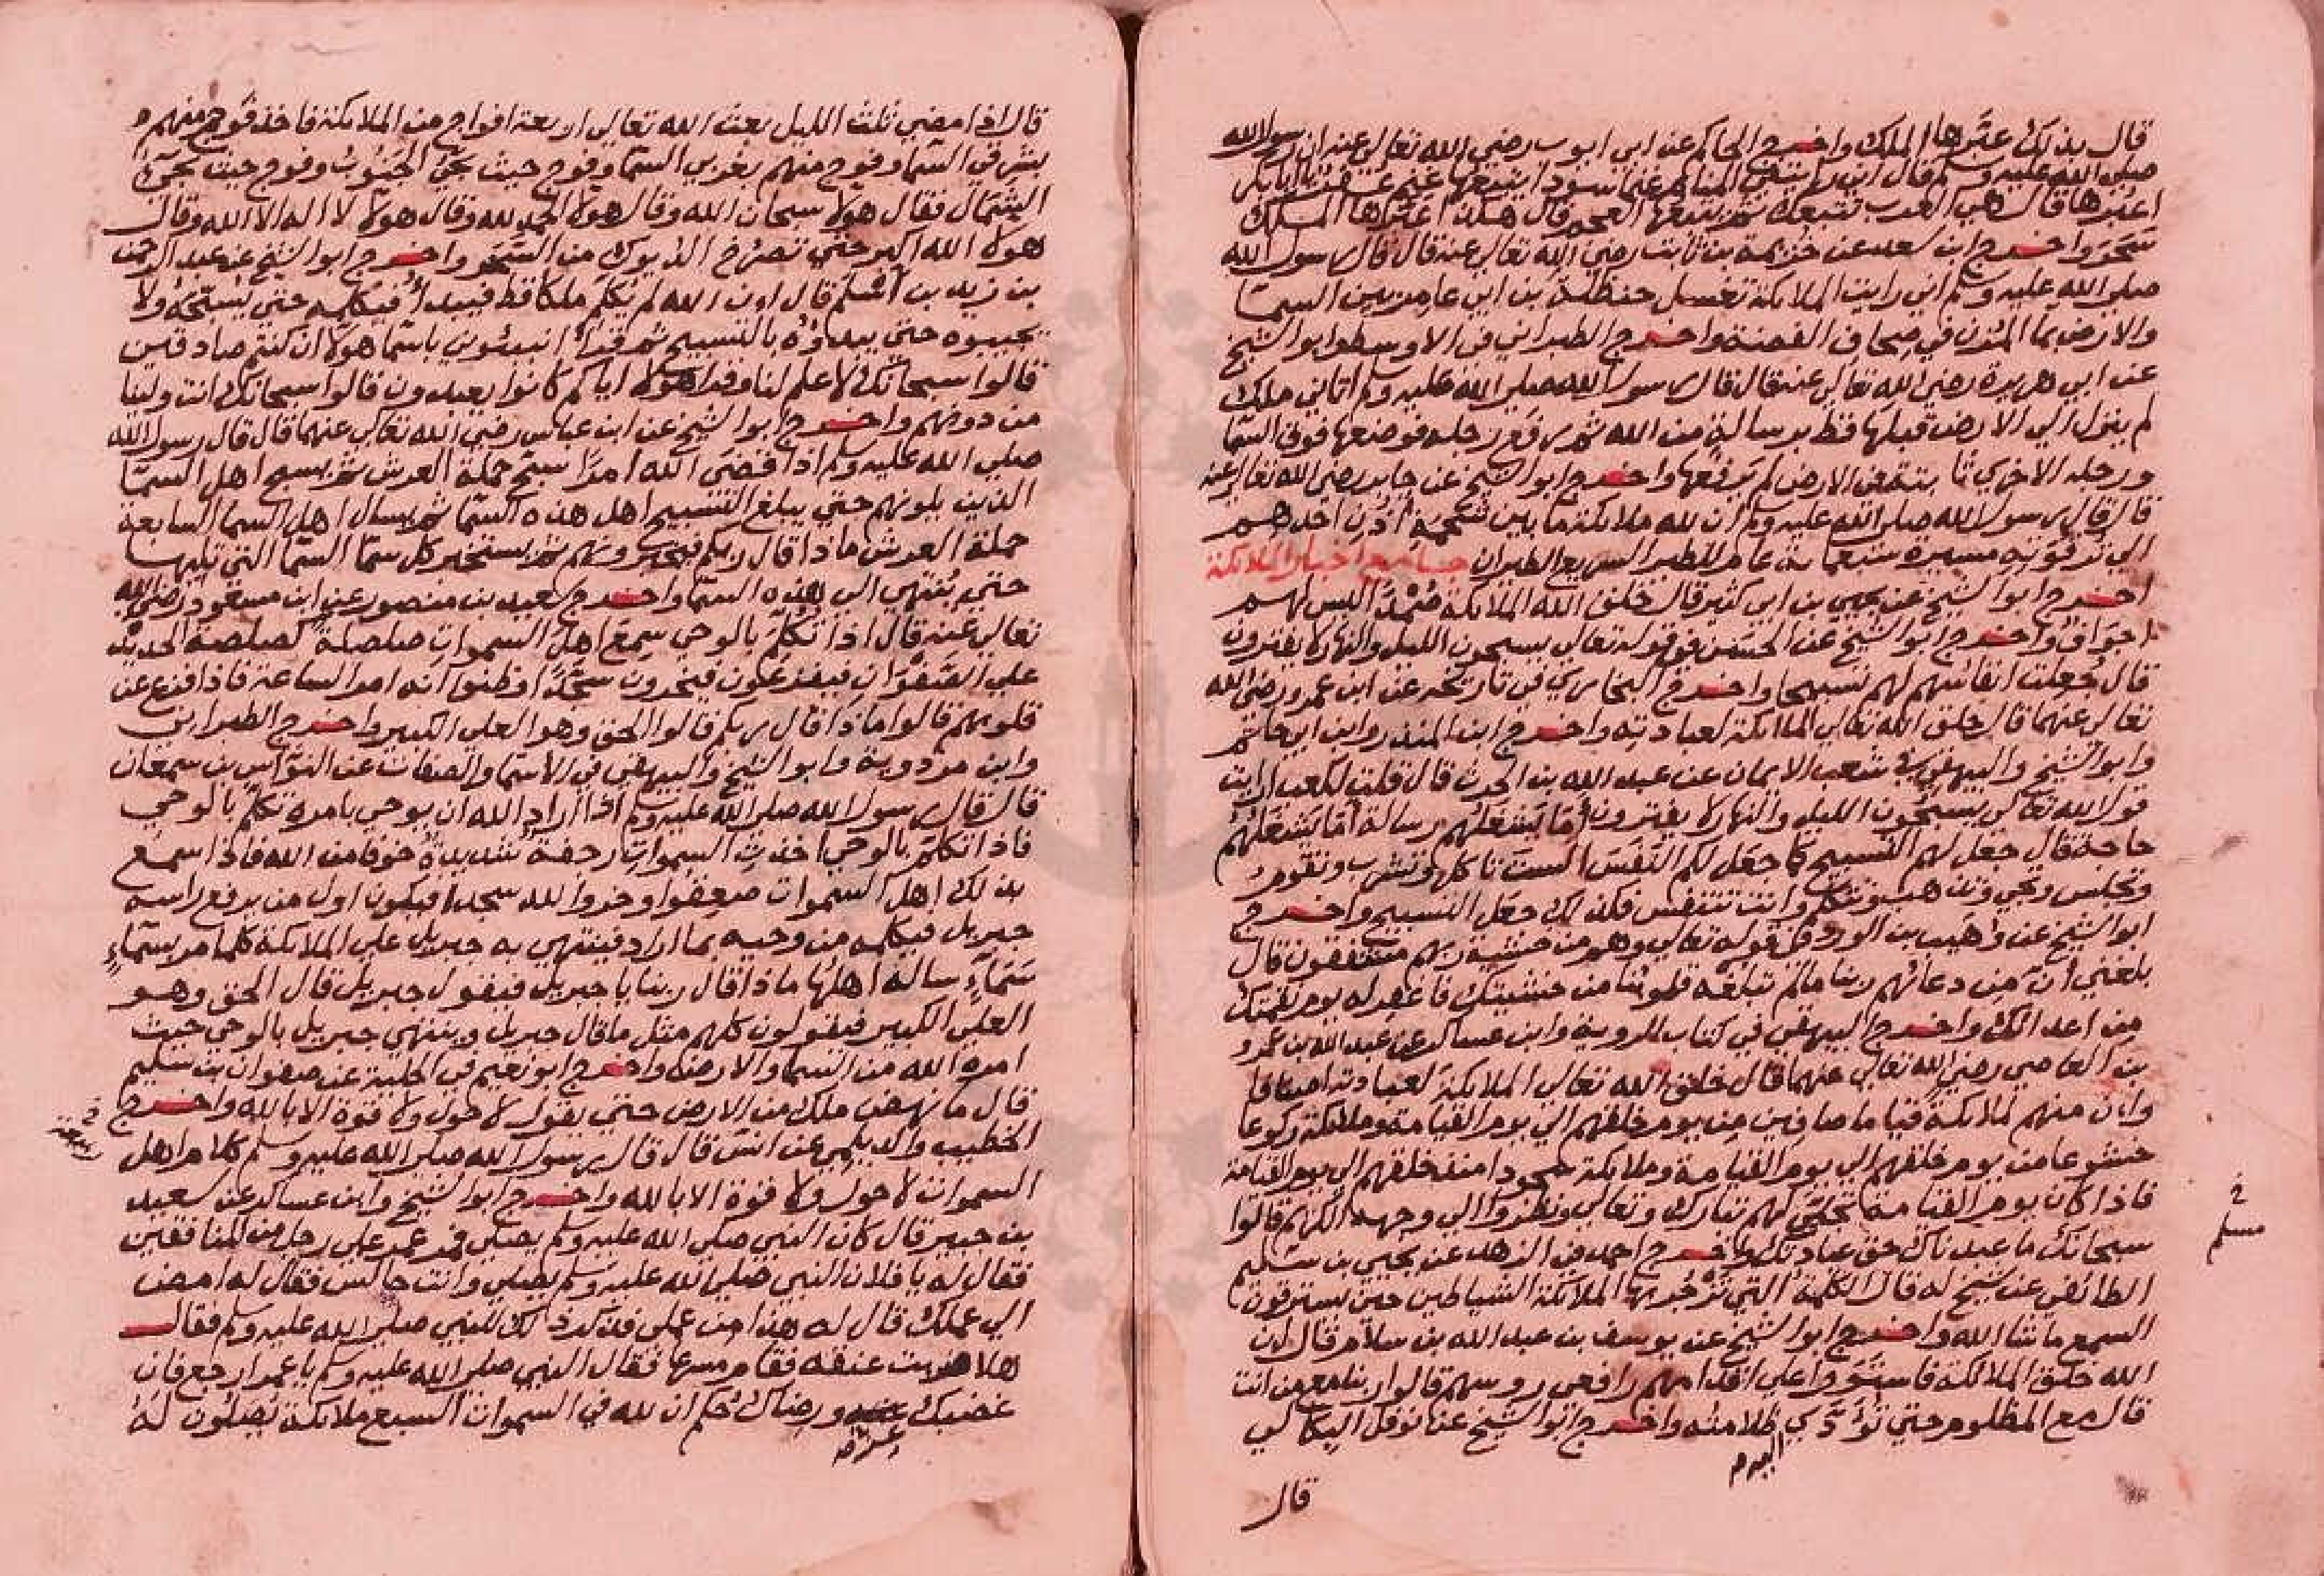 قال بذلك عبّرها الملك واخرج الحاكم عن ابي ايوب رضي الله تعالى عنه ان رسول الله
صلي الله عليه وسلم قال اني رايت في المنام غنما سودا يتبعها غنم عفر يا ابا بكر
اعبرها قال هي العرب تتبعك ثم تتبعها العجم قال هكذا عبرها الملك
سحر واخرج ابن سعد عن خزيمة بن ثابت رضي الله تعالى عنه قال قال رسول الله
صلي الله عليه وسلم اني رايت الملائكة تغسل حنظلة بن ابي عامر بين السما
والارض بما المزن في صحاف الفضة واخرج الطبراني في الاوسط وابو الشيخ
عن ابي هريرة رضي الله تعالي عنه قال قال رسول الله صلي الله عليه وسلم اتاني ملك
لم ينزل الي الارض قبلها قط برسالة من الله ثم رفع رجله فوضعها فوق السما
ورجله الاخري ثابتة في الارض لم يرفعها واخرج ابو الشيخ عن جابر رضي الله تعالي عنه
قال قال رسول الله صلي الله عليه وسلم ان لله ملائكة ما بين شحمة اذن احدهم
الي ترقوته مسيرة سبعماية عام للطير السريع الطيران جامع اخبار الملائكة
اخرج ابو الشيخ عن يحيي بن ابي كثير قال خلق الله الملائكة صمدا ليس لهم
اجواف واخرج ابو الشيخ عن الحسن في قوله تعالي يسبحون الليل والنهار لا يفترون
قال جعلت انفاسهم لهم تسبيحا واخرج البخاري في تاريخه عن ابن عمرو رضي الله
تعالي عنهما قال خلق الله تعالي الملائكة لعبادته واخرج ابن المنذر وابن ابي حاتم
وابو الشيخ والبيهقي في شعب الايمان عن عبد الله بن الحرث قال قلت لكعب ارايت
قول الله تعالي يسبحون الليل والنهار لا يفترون اما يشغلهم رسالة اما يشغلهم
حاجة قال جعل لهم التسبيح كما جعل لكم النفس الست تاكل وتشرب وتقوم
وتجلس وتجي وتذهب وتتكلم وانت تتنفس فكذلك جعل التسبيح واخرج
ابو الشيخ عن وهيب بن الورد في قوله تعالي وهم من خشية ربهم مشفقون قال
بلغني ان من دعائهم ربنا ما لم تبلغه قلوبنا من خشيتك فاغفر له يوم نقمتك
من اعدائك واخرج البيهقي في كتاب الروية وابن عساكر عن عبد الله بن عمرو
بن العاصي رضي الله تعالي عنهما قال خلق الله تعالي الملائكة لعبادته اصنافا
وان منهم لملائكة قياما صافين من يوم خلقهم الي يوم القيامة وملائكة ركوعا
خشوعا من يوم خلقهم الي يوم القيامة وملائكة سجودا منذ خلقهم الي يوم القيامة
فاذا كان يوم القيامة تجلي لهم تبارك وتعالي ونظروا الي وجهه الكريم قالوا
سبحانك ما عبدناك حق عبادتك واخرج احمد في الزهد عن يحيي بن سليم
الطائفي عن شيخ له قال الكلمة التي تزجر بها الملائكة الشياطين حين يسترقون
السمع ما شا الله واخرج ابو الشيخ عن يوسف بن عبد الله بن سلام قال ان
الله خلق الملائكة فاستووا علي اقدامهم رافعي روسهم قالوا ربنا مع من انت
قال مع المظلوم حتي تؤدي اليه ظلامته واخرج ابو الشيخ عن نوف البكالي
قال
مسلم
قال اذا مضي ثلث الليل بعث الله تعالي اربعة افواج من الملائكة فاخذ فوج منهم
بشرقي السما وفوج منهم بغربي السما وفوج حيث تجي الجنوب وفوج حيث تجي
الشمال فقال هولا سبحان الله وقال هولا الحمد لله وقال هولا لا اله الا الله وقال
هولا الله اكبر حتي تصرخ الديوك من السحر واخرج ابو الشيخ عن عبد الرحمن
بن زيد بن اسلم قال ان الله لم يكلم ملكا قط فيبدا فيكلمه حتي يسبحه ولا
يجيبوه حتي يبدؤه بالتسبيح ثم قرا انبئوني باسما هولا ان كنتم صادقين
قالوا سبحانك لا علم لنا وقرا هولا اياكم كانوا يعبدون قالوا سبحانك انت ولينا
من دونهم واخرج ابو الشيخ عن ابن عباس رضي الله تعالي عنهما قال قال رسول الله
صلي الله عليه وسلم اذا قضي الله امرا سبح حملة العرش ثم يسبح اهل السما
الذين يلونهم حتي يبلغ التسبيح اهل هذه السما ثم يسال اهل السما السابعة
حملة العرش ماذا قال ربكم فيخبرونهم ثم يستخبر كل سما السما التي تليها
حتي ينتهي الي هذه السما واخرج سعيد بن منصور عن ابن مسعود رضي الله
تعالي عنه قال اذا تكلم بالوحي سمع اهل السموات صلصلة كصلصة الحديد
علي الصفوان فيفزعون فيخرون سجدا وظنوا انه امر الساعة فاذا فزع عن
قلوبهم قالوا ماذا قال ربكم قالوا الحق وهو العلي الكبير واخرج الطبراني
وابن مردوية وابو الشيخ والبيهقي في الاسما والصفات عن النواس بن سمعان
قال قال رسول الله صلي الله عليه وسلم اذا اراد الله ان يوحي بامره تكلم بالوحي
فاذا تكلم بالوحي اخذت السموات رجفة شديدة خوفا من الله فاذا سمع
بذلك اهل السموات صعقوا وخروا لله سجدا فيكون اول من يرفع راسه
جبريل فيكلمه من وحيه بما اراد فينتهي به جبريل علي الملائكة كلما مر بسماء
سماء ساله اهلها ماذا قال ربنا يا جبريل فيقول جبريل قال الحق وهو
العلي الكبير فيقولون كلهم مثل ما قال جبريل وينتهي جبريل بالوحي حيث
امره الله من السما والارض واخرج ابو نعيم في الحلية عن صفوان بن سليم
قال ما نهض ملك من الارض حتي يقول لا حول ولا قوة الا بالله واخرج
الخطيب والديلمي عن انس قال قال رسول الله صلي الله عليه وسلم كلام اهل
السموات لا حول ولا قوة الا بالله واخرج ابو الشيخ وابن عساكر عن سعيد
بن جبير قال كان النبي صلي الله عليه وسلم يصلي فمر عمر علي رجل من المنافقين
فقال له يا فلان النبي صلي الله عليه وسلم يصلي وانت جالس فقال له امض
الي عملك قال له هذا من عملي فذكر ذلك للنبي صلي الله عليه وسلم فقال
هلا ضربت عنقه فقام مسرعا فقال النبي صلي الله عليه وسلم يا عمر ارجع فان
غضبك عز ورضاك حكم ان لله في السموات السبع ملائكة يصلون له